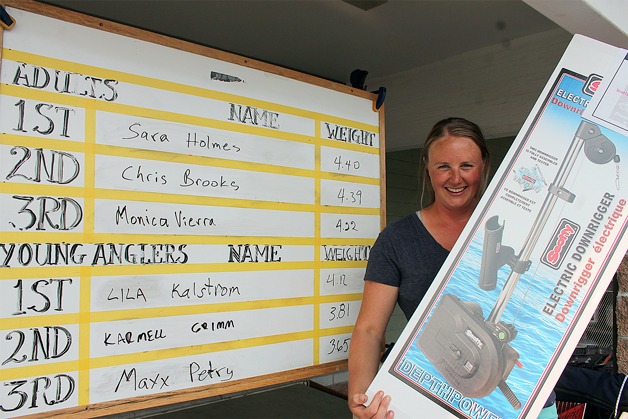 ADULTS
NAME WEIGHT
1ST Sara Holmes 4.40
2ND Chris Brooks 4.39
3RD Monica Vierra 4.22
YOUNG ANGLERS NAME WEIGHT
1ST LILA Kalstrom 4.12
2ND KARMELL GRIMM 3.81
3RD Maxx Petry 3.65
Scotty
ELECTRIC
Downrigger
Scotty
ELECTRIC DOWNRIGGER
Downrigger électrique
Scotty
DEPTHPOWER